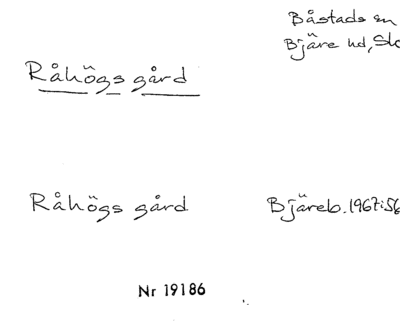 Båstads sn
Bjäre hd, Sk
Råhögs gård
Råhögs gård Bjäreb. 1967:56
Nr 19186